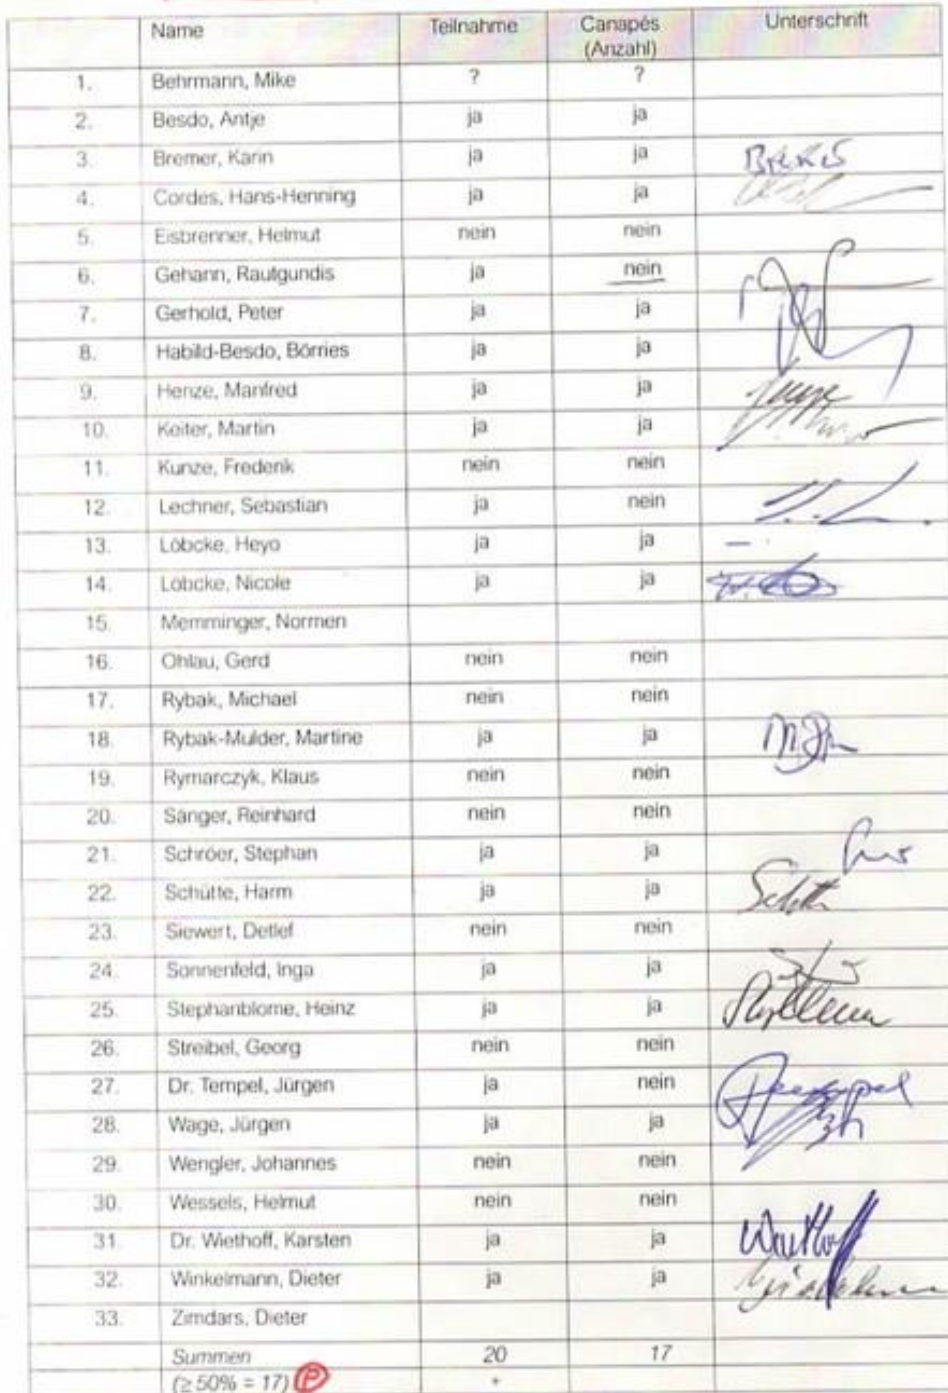 Name Teilnahme Canapés (Anzahl) Unterschrift
1. Behrmann, Mike ? ?
2. Besdo, Antje ja ja
3. Bremer, Karin ja ja
4. Cordes, Hans-Henning ja ja
5. Eisbrenner, Helmut nein nein
6. Gehann, Rautgundis ja nein
7. Gerhold, Peter ja ja
8. Habild-Besdo, Börries ja ja
9. Henze, Manfred ja ja
10. Keiter, Martin ja ja
11. Kunze, Frederik nein nein
12. Lechner, Sebastian ja nein
13. Löbcke, Heyo ja ja
14. Löbcke, Nicole ja ja
15. Memminger, Normen
16. Ohlau, Gerd nein nein
17. Rybak, Michael nein nein
18. Rybak-Mulder, Martine ja ja
19. Rymarczyk, Klaus nein nein
20. Sänger, Reinhard nein nein
21. Schröer, Stephan ja ja
22. Schütte, Harm ja ja
23. Siewert, Detlef nein nein
24. Sonnenfeld, Inga ja ja
25. Stephanblome, Heinz ja ja
26. Streibel, Georg nein nein
27. Dr. Tempel, Jürgen ja nein
28. Wage, Jürgen ja ja
29. Wengler, Johannes nein nein
30. Wessels, Helmut nein nein
31. Dr. Wiethoff, Karsten ja ja
32. Winkelmann, Dieter ja ja
33. Zimdars, Dieter
Summen 20 17
(≥ 50% = 17) P +